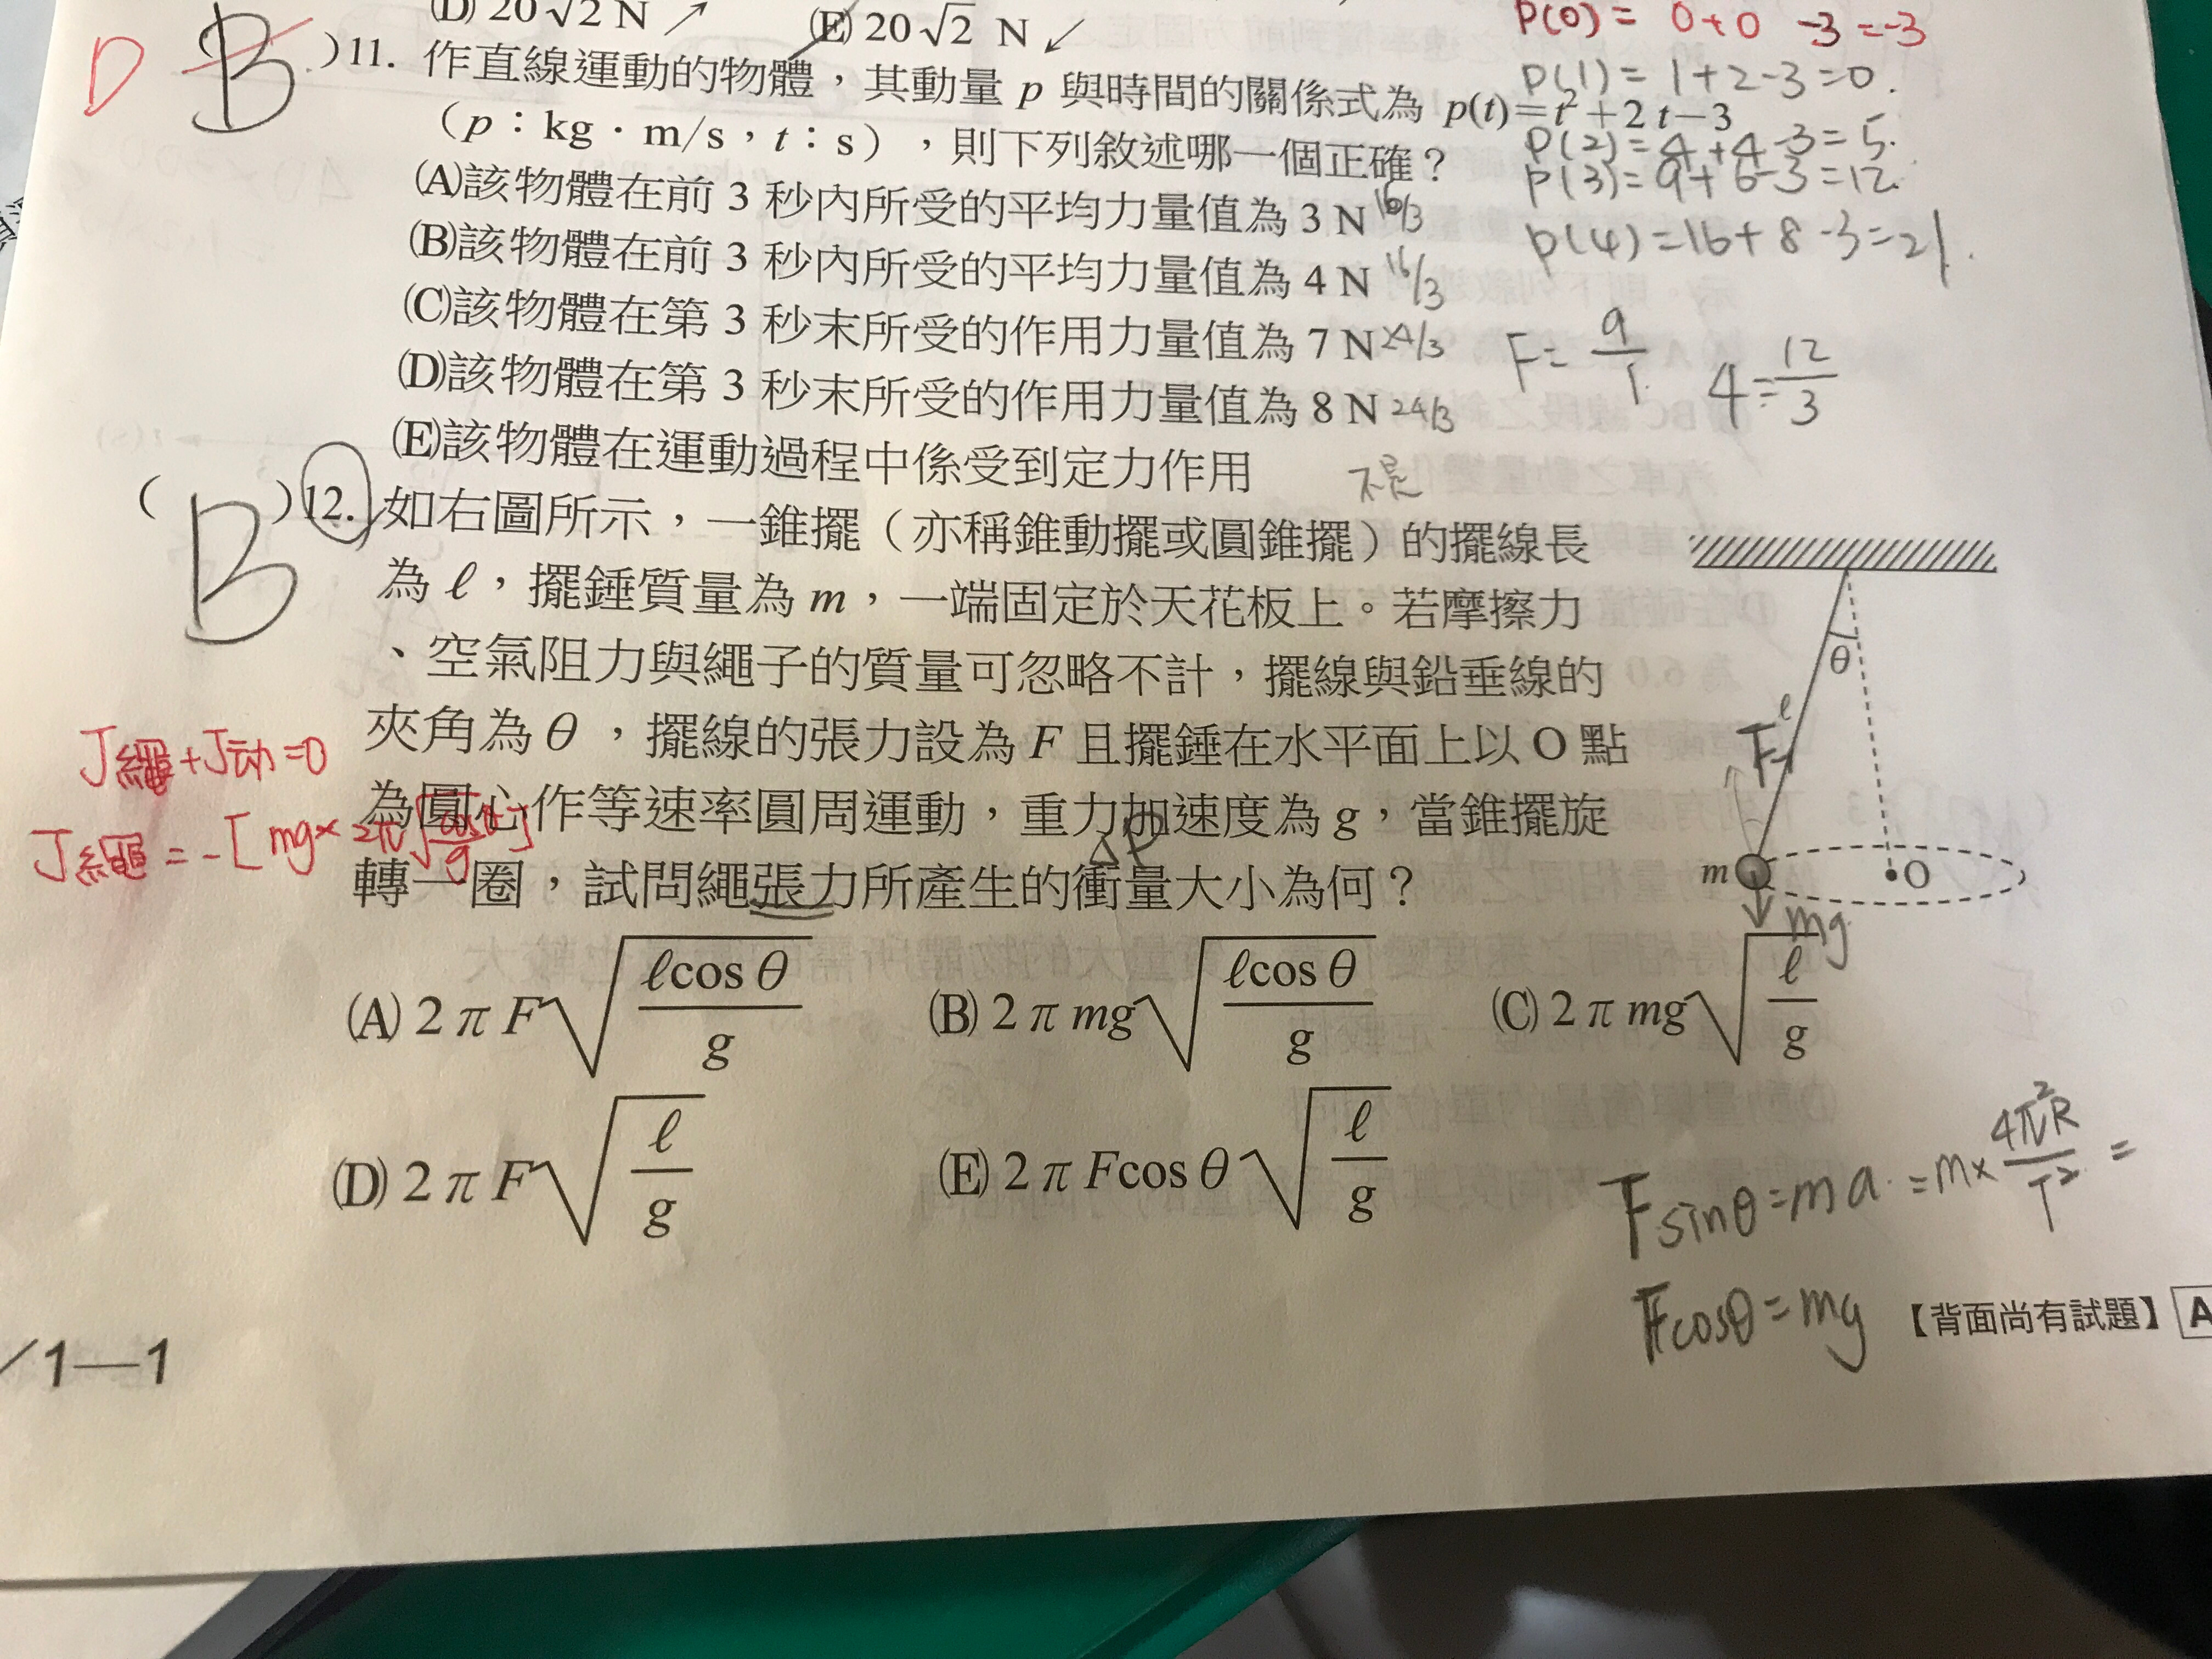 (D) 20√2 N ↗ (E) 20√2 N ↙
P(0) = 0+0 -3 =-3
D B )11. 作直線運動的物體，其動量 p 與時間的關係式為 p(t)=t²+2t-3
P(1) = 1+2-3=0.
（p：kg・m/s，t：s），則下列敘述哪一個正確？
P(2)=4+4-3=5.
P(3)=9+6-3=12.
(A)該物體在前 3 秒內所受的平均力量值為 3 N 16/3
P(4)=16+8-3=21.
(B)該物體在前 3 秒內所受的平均力量值為 4 N 16/3
(C)該物體在第 3 秒末所受的作用力量值為 7 N 24/3
F= 9/1 4= 12/3
(D)該物體在第 3 秒末所受的作用力量值為 8 N 24/3
(E)該物體在運動過程中係受到定力作用 不是
( B )12. 如右圖所示，一錐擺（亦稱錐動擺或圓錐擺）的擺線長
為 ℓ，擺錘質量為 m，一端固定於天花板上。若摩擦力
、空氣阻力與繩子的質量可忽略不計，擺線與鉛垂線的
夾角為 θ ，擺線的張力設為 F 且擺錘在水平面上以 O 點
為圓心作等速率圓周運動，重力加速度為 g，當錐擺旋
轉一圈，試問繩張力所產生的衝量大小為何？
ΔP
J繩+J动=0
J繩 = -[mg× 2π√(ℓcosθ/g)]
θ
ℓ
F
m
O
mg
(A) 2πF√(ℓcosθ/g) (B) 2πmg√(ℓcosθ/g) (C) 2πmg√(ℓ/g)
(D) 2πF√(ℓ/g) (E) 2πFcosθ√(ℓ/g)
Fsinθ=ma=m×4π²R/T² =
Fcosθ=mg
【背面尚有試題】 A
/1—1